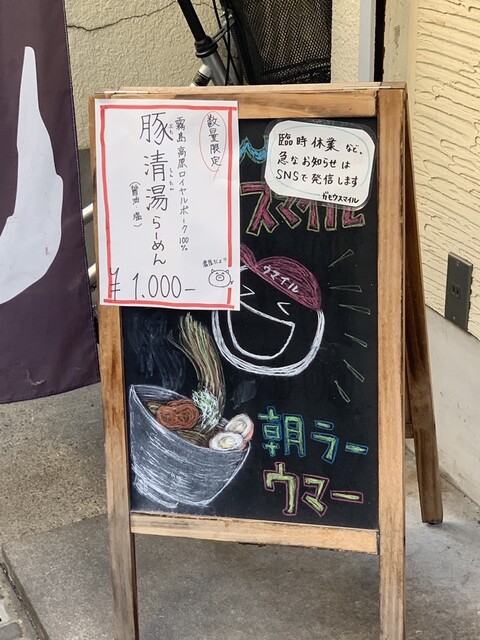 数量限定
霧島高原ロイヤルポーク100%
豚清湯らーめん
ぶたちんたん
(醤油・塩)
¥1,000-
臨時休業など、
急なお知らせは
SNSで発信します
ガモウスマイル
スマイル
ウマイル
朝ラー
ウマー